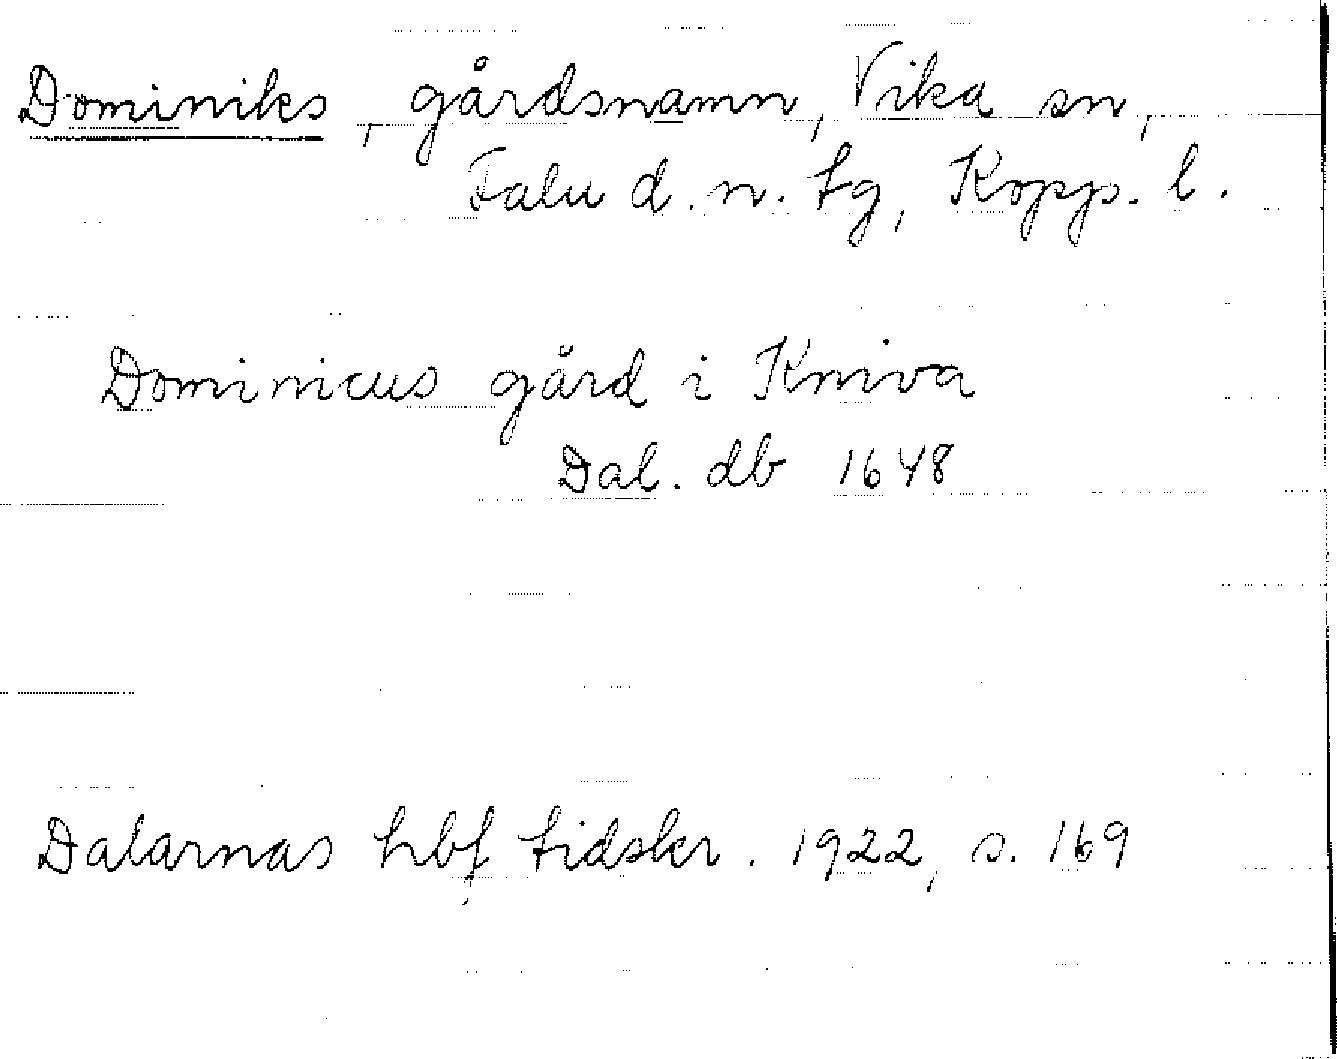 Dominiks, gårdsnamn, Vika sn,
Falu d. n. tg, Kopp. l.
Dominicus gård i Kniva
Dal. db 1648
Dalarnas hbf tidskr. 1922, s. 169